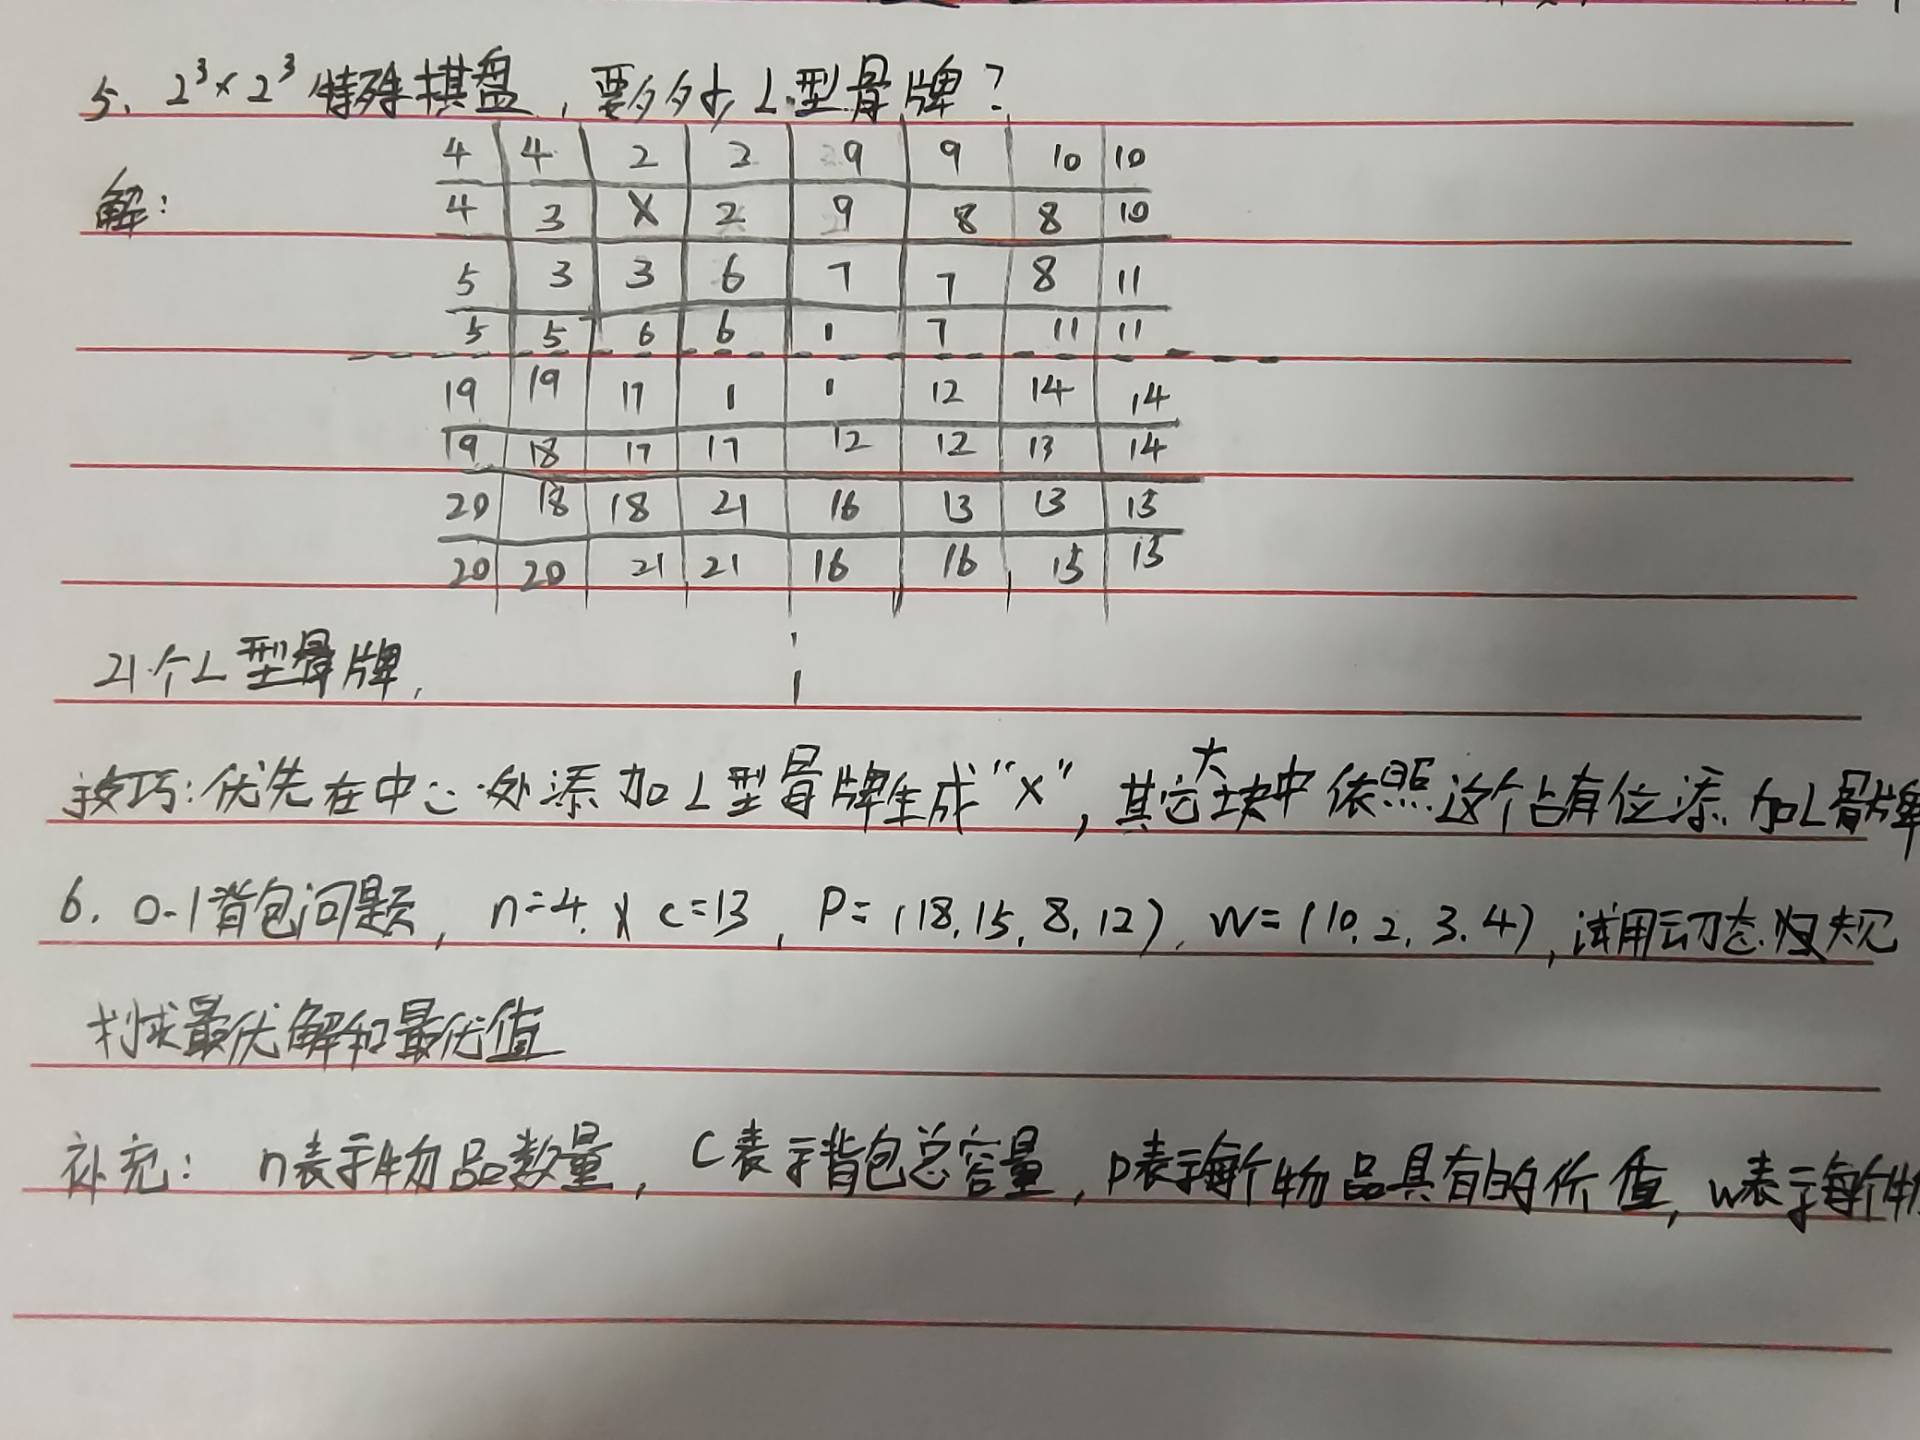 5. 2³×2³特殊棋盘，要多少L型骨牌？
4 4 2 2 9 9 10 10
解： 4 3 X 2 9 8 8 10
5 3 3 6 7 7 8 11
5 5 6 6 1 7 11 11
19 19 17 1 1 12 14 14
19 18 17 17 12 12 13 14
20 18 18 21 16 13 13 15
20 20 21 21 16 16 15 15
21个L型骨牌，
技巧：优先在中心处添加L型骨牌生成“X”，其它大块中依照这个占有位添加L骨牌
6. 0-1背包问题，n=4. c=13，P=(18,15,8,12)，W=(10,2,3,4)，试用动态规
划求最优解和最优值
补充： n表示物品数量，C表示背包总容量，p表示每个物品具有的价值，w表示每个物